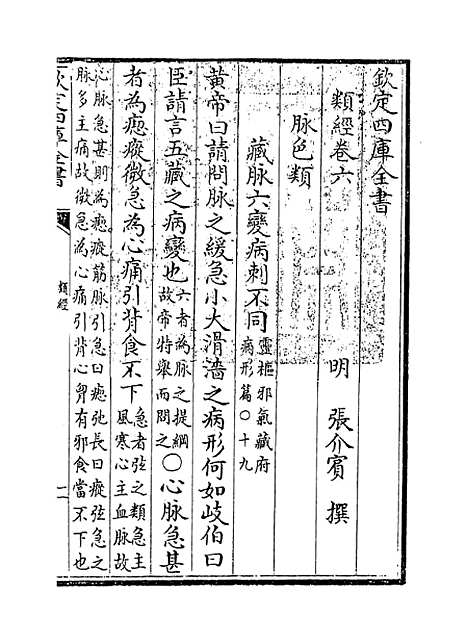 欽定四庫全書
類經卷六
明 張介賓 撰
脉色類
藏脉六變病刺不同
靈樞邪氣藏府
病形篇〇十九
黃帝曰請問脉之緩急小大滑濇之病形何如岐伯曰
臣請言五藏之病變也
六者為脉之提綱
故帝特舉而問之
〇心脉急甚
者為瘛瘲微急為心痛引背食不下
急者弦之類急主
風寒心主血脉故
心脉急甚則為瘛瘲筋脉引急曰瘛弛長曰瘲弦急之
脉多主痛故微急為心痛引背心胷有邪食當不下也
欽定四庫全書
類經